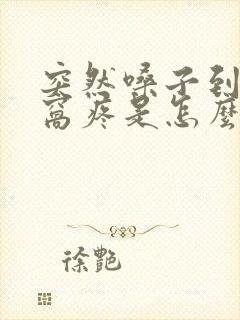 突然嗓子到
窩疼是怎麼
徐艷